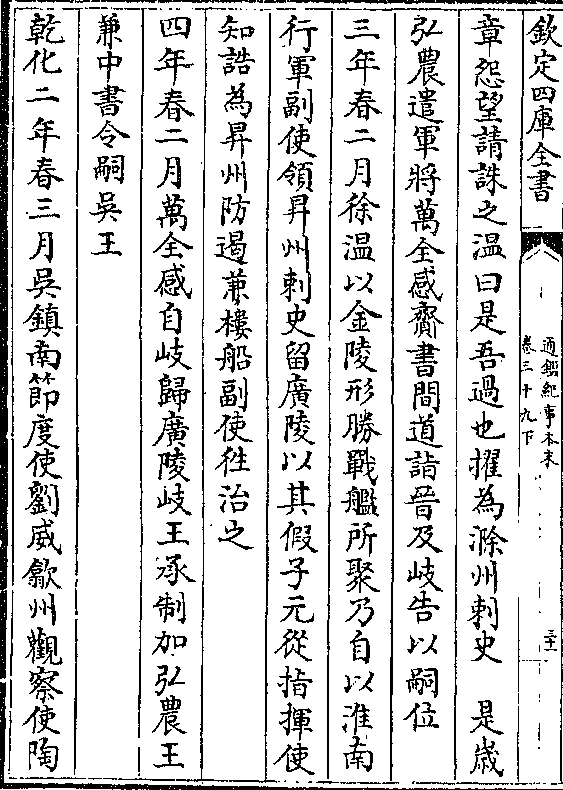 欽定四庫全書
通鑑紀事本末
卷三十九下
三十
章怨望請誅之溫曰是吾過也擢為滁州刺史　是歲
弘農遣軍將萬全感齎書間道詣晉及岐告以嗣位
三年春二月徐溫以金陵形勝戰艦所聚乃自以淮南
行軍副使領昇州刺史留廣陵以其假子元從指揮使
知誥為昇州防遏兼樓船副使徃治之
四年春二月萬全感自岐歸廣陵岐王承制加弘農王
兼中書令嗣吳王
乾化二年春三月吳鎮南節度使劉威歙州觀察使陶